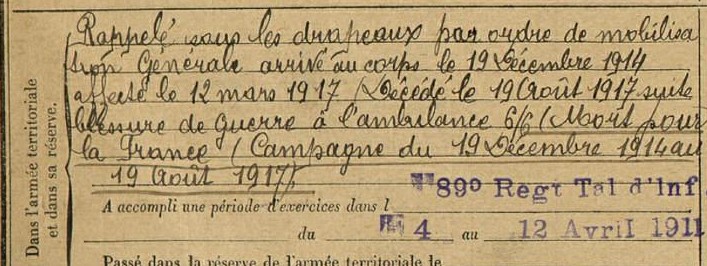 Dans l'armée territoriale
et dans sa réserve.
Rappelé sous les drapeaux par ordre de mobilisa
tion Générale arrivé au corps le 19 Décembre 1914
affecté le 12 mars 1917 (Décédé le 19 Août 1917 suite
blessure de guerre à l'ambulance 6/6 (Mort pour
la France (Campagne du 19 Décembre 1914 au
19 Août 1917).
A accompli une période d'exercices dans l 89º Regt Tal d'Inf
du 4 au 12 Avril 1911
Passé dans la réserve de l'armée territoriale le